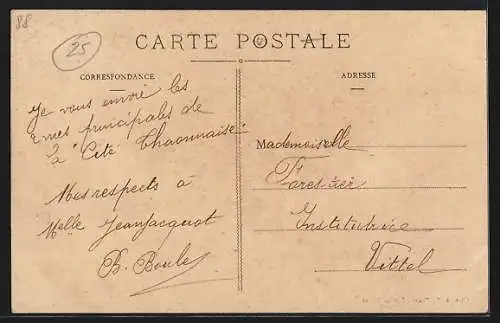 88
25
CARTE POSTALE
CORRESPONDANCE
ADRESSE
Je vous envoie les
2 vues principales de
la "Cité Thaonnaise"
Mes respects à
Melle Jeanjacquot
B. Boule
Mademoiselle
Forestier
Institutrice
Vittel